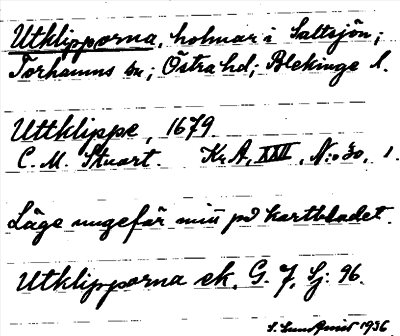 Utklipporna, holmar i Saltsjön;
Torhamns sn; Östra hd; Blekinge l.
Uttklippe, 1679.
C. M. Stuart. Kr A, XXVI, N:o 30, 1.
Läge ungefär mitt på kartbladet.
Utklipporna ek. G. J. Sj: 96.
1936